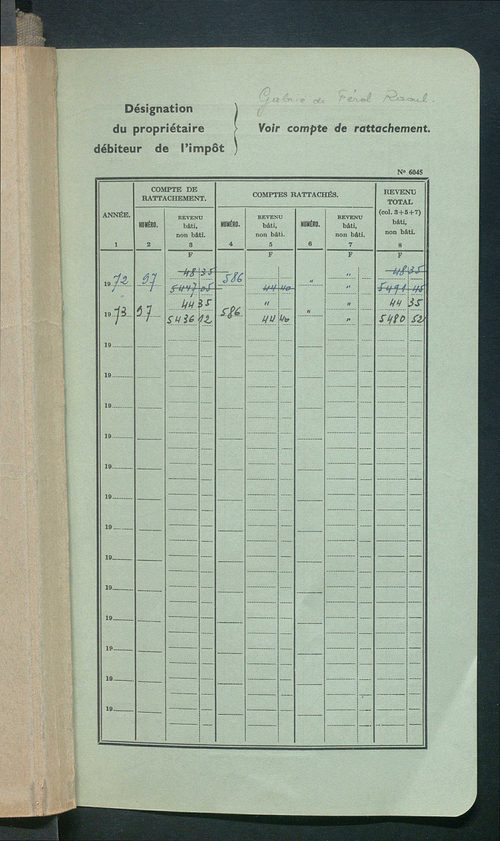 Gabrie de Férol Raoul.
Désignation
du propriétaire
débiteur de l'impôt
Voir compte de rattachement.
N° 6045
ANNÉE. COMPTE DE RATTACHEMENT. COMPTES RATTACHÉS. REVENU TOTAL (col. 3+5+7) bâti, non bâti.
NUMÉRO. REVENU bâti, non bâti. NUMÉRO. REVENU bâti, non bâti. NUMÉRO. REVENU bâti, non bâti.
1 2 3 4 5 6 7 8
F F F F
48 35 " 48 35
1972 97 5447 05 586 44 40 " " 5491 45
44 35 " " 44 35
1973 97 5436 12 586 44 40 " " 5480 52
19
19
19
19
19
19
19
19
19
19
19
19
19